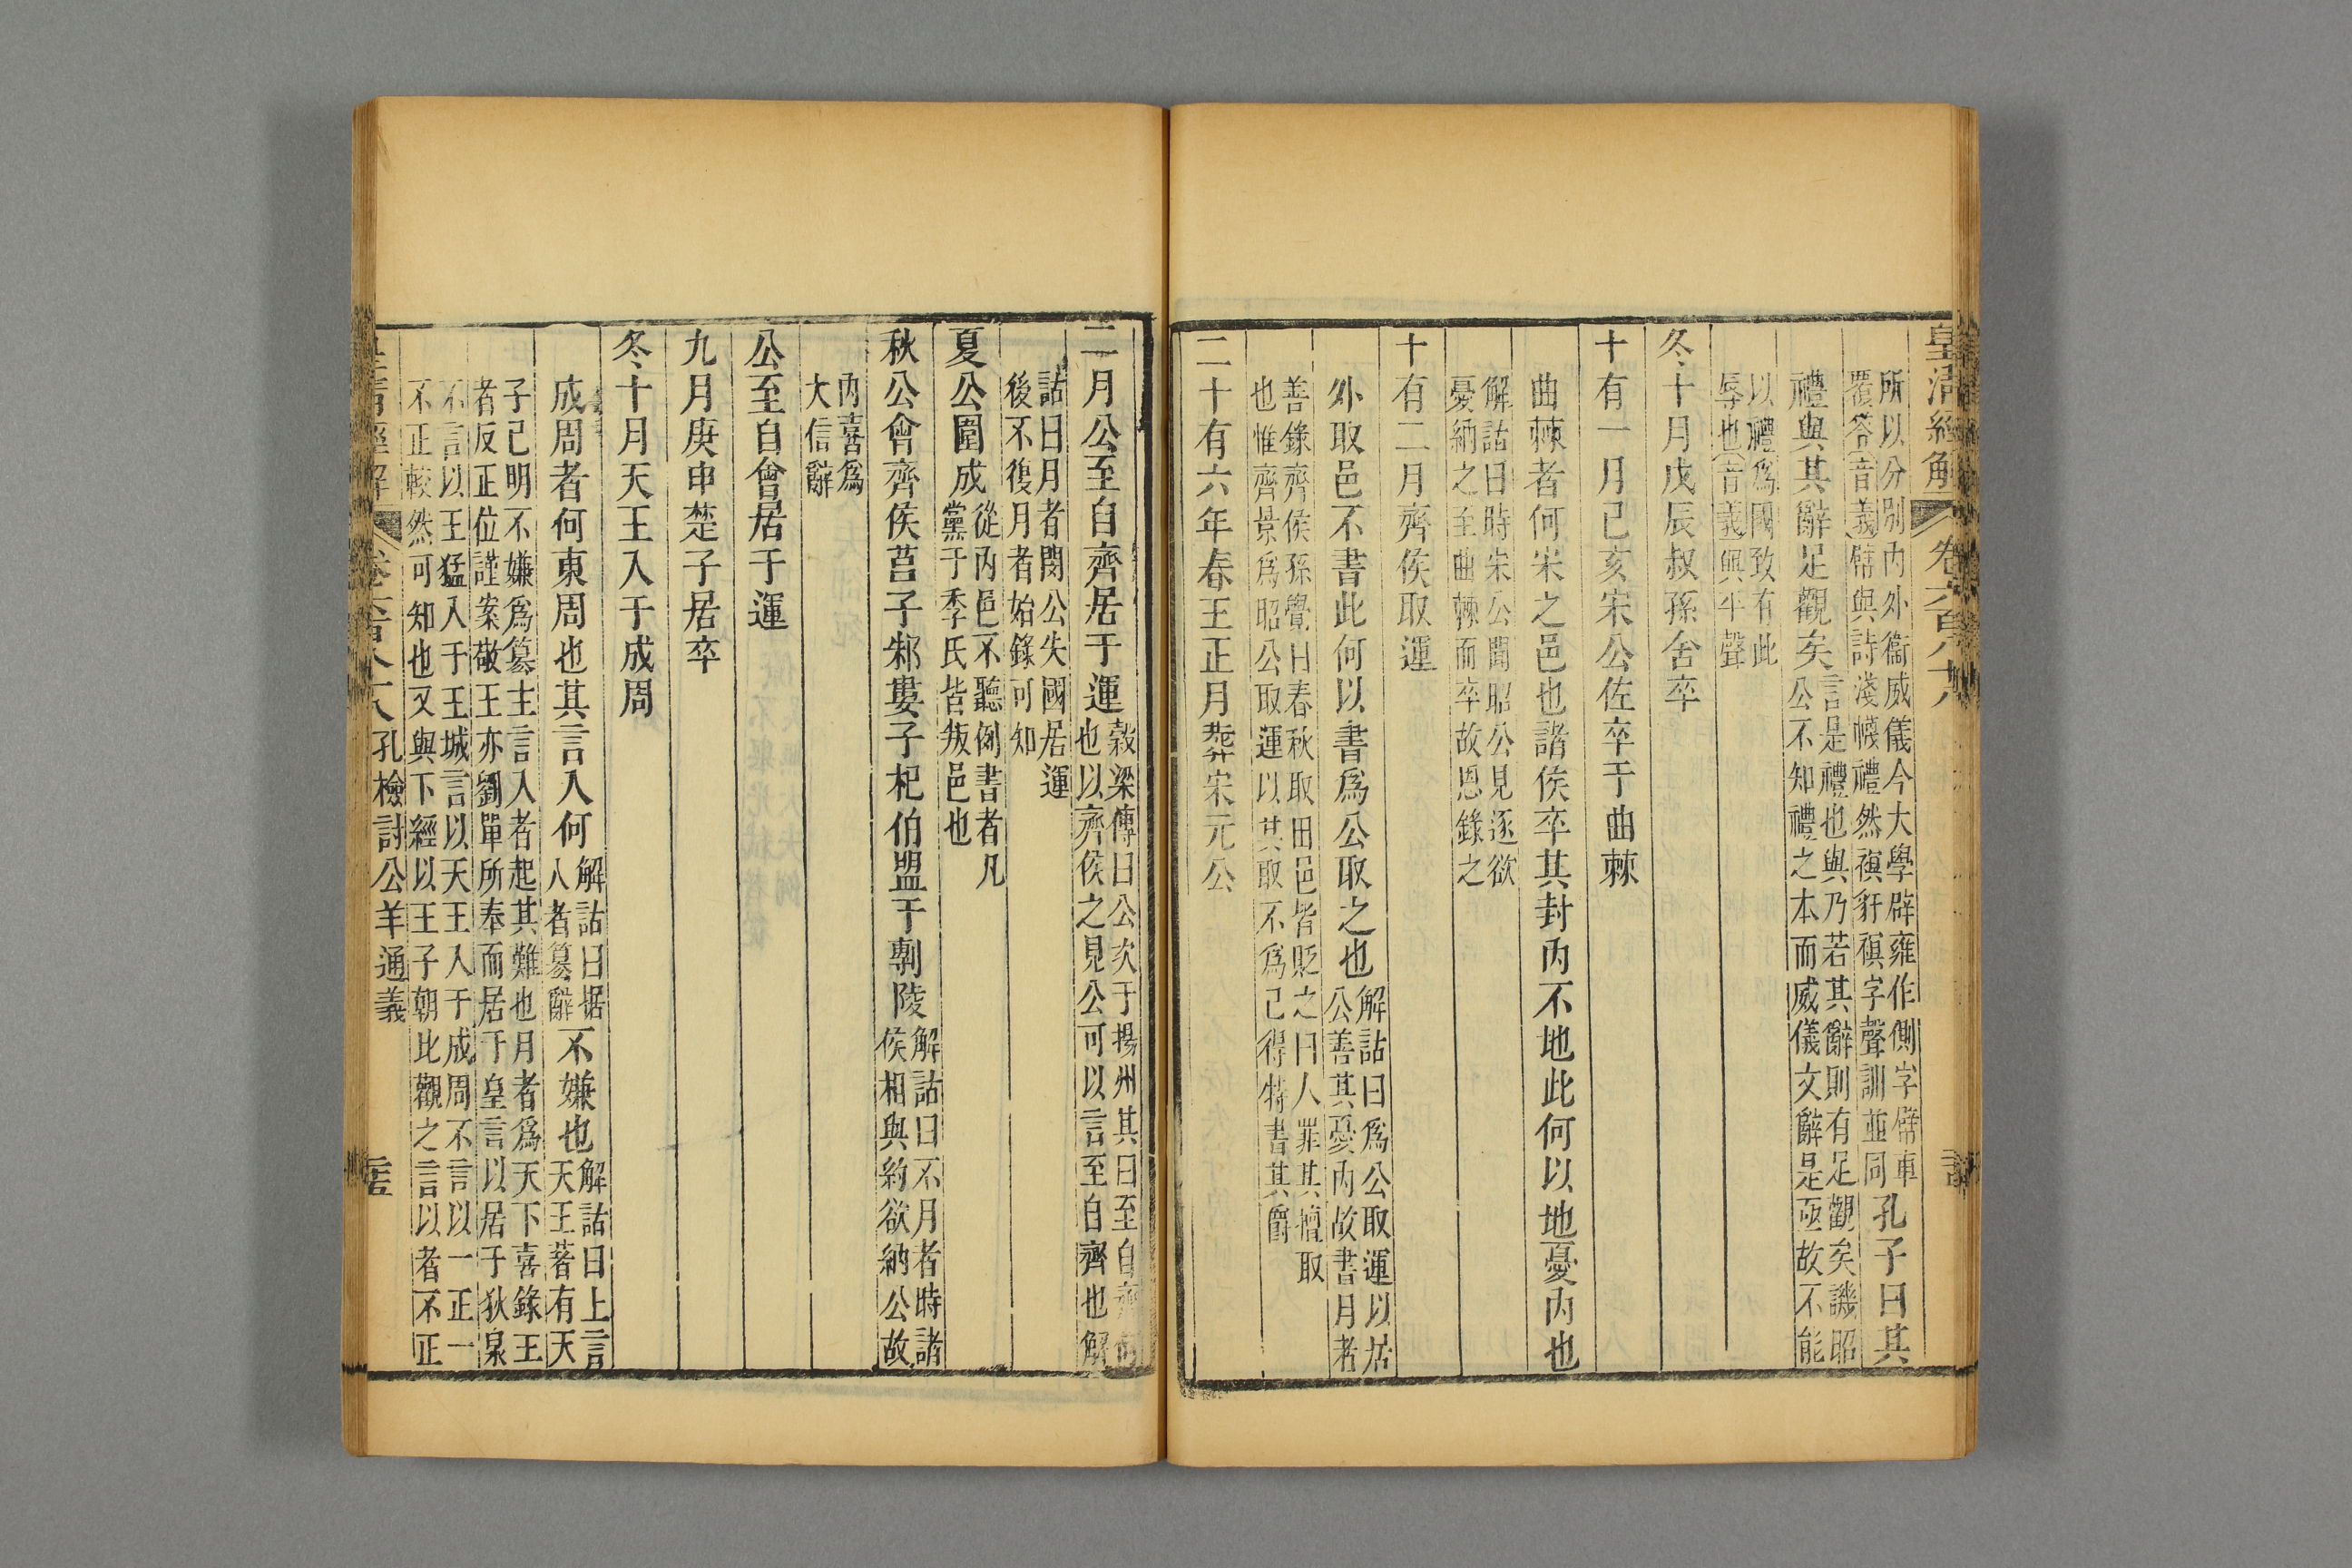 皇清經解 卷六百八十八
所以分別內外衞威儀今大學辟雍作側字幦車
覆笭音義幦與詩淺幭禮然䙪豻䙪字聲訓並同孔子曰其
禮與其辭足觀矣言是禮也與乃若其辭則有足觀矣譏昭
公不知禮之本而威儀文辭是亟故不能
以禮爲國致有此
辱也音義與平聲
冬十月戊辰叔孫舍卒
十有一月己亥宋公佐卒于曲棘
曲棘者何宋之邑也諸侯卒其封內不地此何以地憂內也
解詁曰時宋公聞昭公見逐欲
憂納之至曲棘而卒故恩錄之
十有二月齊侯取運
外取邑不書此何以書爲公取之也解詁曰爲公取運以居
公善其憂內故書月者
善錄齊侯孫覺曰春秋取田邑皆貶之曰人罪其擅取
也惟齊景爲昭公取運以其取不爲己得特書其爵
二十有六年春王正月葬宋元公
三月公至自齊居于運穀梁傳曰公次于揚州其曰至自齊何
也以齊侯之見公可以言至自齊也解
詁曰月者閔公失國居運
後不復月者始錄可知
夏公圍成從內邑不聽例書者凡
黨于季氏皆叛邑也
秋公會齊侯莒子邾婁子杞伯盟于剸陵解詁曰不月者時諸
侯相與約欲納公故
內喜爲
大信辭
公至自會居于運
九月庚申楚子居卒
冬十月天王入于成周
成周者何東周也其言入何解詁曰据
入者篡辭不嫌也解詁曰上言
天王著有天
子已明不嫌爲篡主言入者起其難也月者爲天下喜錄王
者反正位謹案敬王亦劉單所奉而居于皇言以居于狄泉
不言以王猛入于王城言以天王入于成周不言以一正一
不正較然可知也又與下經以王子朝比觀之言以者不正
皇清經解 卷六百八十八 孔檢討公羊通義